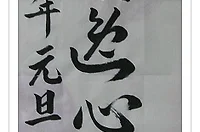 逸心
年元旦